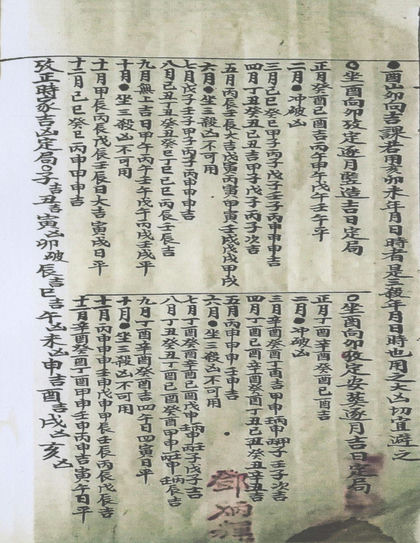 ●酉山卯向吉課君用亥卯未年月日時者是三殺年月日時也用之大凶切宜避之
○坐酉向卯改定逐月竪造吉日定局
正月癸酉己酉吉丙午甲午戊午壬午平
二月●冲破凶
三月己巳癸巳甲子丙子戊子壬子丙申甲申吉
四月丁丑癸丑己丑吉甲子戊子丙子次吉
五月丙辰壬辰大吉戊寅丙寅甲寅壬戌戊戌甲戌
六月●坐三殺凶不可用
七月戊子壬子丙子丙申申申吉
八月己丑丁丑癸丑丁巳己巳丙辰壬辰吉
九月無上吉日甲午丙午壬午戊午丙戌壬戌平
十月●坐三殺凶不可用
十一月甲辰丙辰戊辰壬辰日大吉寅戌日平
十二月己巳癸巳丙申甲申吉
○坐酉向卯改定安葬逐月吉日定局
正月丁酉辛酉癸酉己酉吉
二月●冲破凶
三月辛酉癸酉丁酉吉甲申壬子次吉
四月丁酉己酉辛酉癸酉丁丑己丑癸丑辛丑吉
五月丙申甲申壬申吉
六月●坐三殺凶不可用
七月丁酉癸酉己酉戊申壬子戊子吉
八月丁丑癸丑丁酉己酉癸酉壬辰吉
九月丁酉辛酉癸酉吉四午日四寅日平
十月●坐三殺凶不可用
十一月丙申甲申壬申戊申甲辰壬辰丙辰戊辰吉
十二月辛酉癸酉丁酉甲申壬申丙申吉寅午日平
改正時家吉凶定局○子吉丑吉寅凶卯破辰吉巳吉午凶未凶申吉酉吉戌凶亥凶